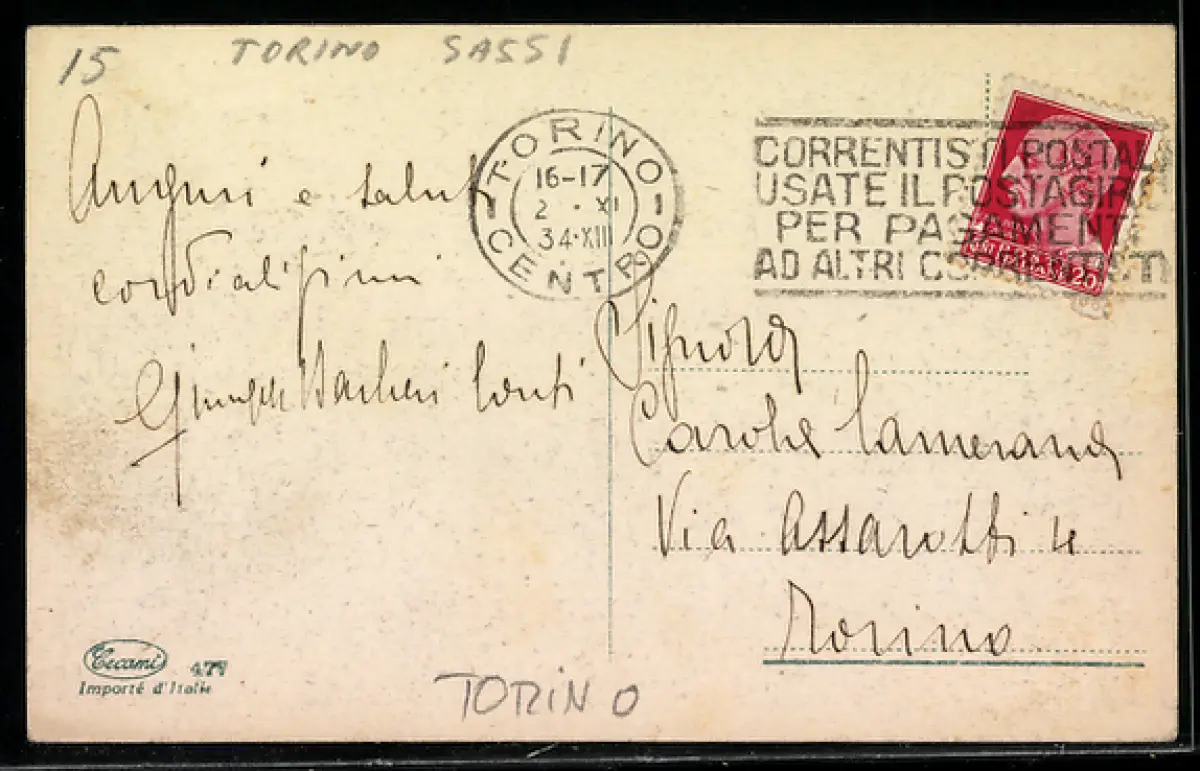 15 TORINO SASSI
Auguri e saluti
cordialissimi
Giuseppe Barberi Conti
TORINO
16-17
2 · XI
34·XII
CENTRO
CORRENTISTI POSTALI
USATE IL POSTAGIRO
PER PAGAMENTI
AD ALTRI CORRENTISTI
20
Signora
Carola Camerana
Via Assarotti
Torino
Cecami 477
Importé d'Italie
TORINO